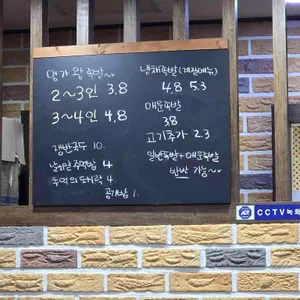 명가 왕족발~
2~3인 3.8
3~4인 4.8
쟁반국수 10.
날치알 주먹밥 4
추억의 도시락 4
공기밥 1
냉채족발 (계절메뉴)
4.8 5.3
매운족발
3.8
고기추가 2.3
일반족발+매운족발
반반 가능~
ADT
CCTV녹화